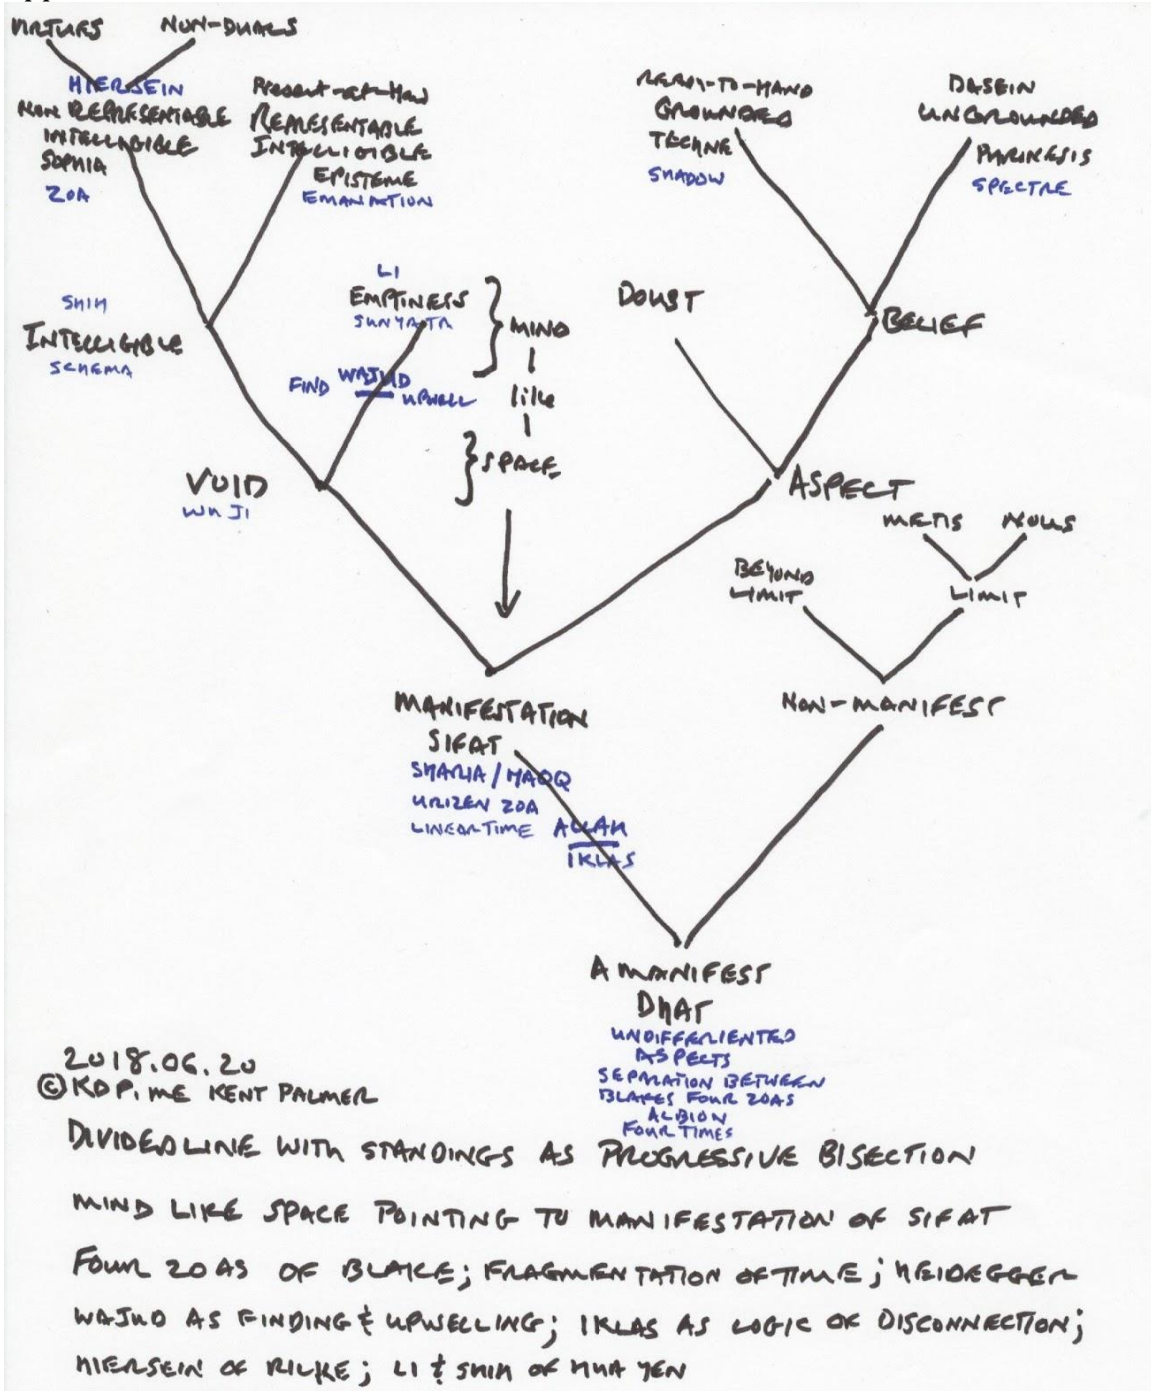 VIRTUES
NON-DUALS
HIERSEIN
NON REPRESENTABLE
INTELLIGIBLE
SOPHIA
ZOA
Present-at-Hand
REPRESENTABLE
INTELLIGIBLE
EPISTEME
EMANATION
READY-TO-HAND
GROUNDED
TECHNE
SHADOW
DASEIN
UNGROUNDED
SPECTRE
SHIH
INTELLIGIBLE
SCHEMA
LI
EMPTINESS
SUNYATA
FIND WAJUD UPWELL
MIND
like
SPACE
DOUBT
BELIEF
VOID
WU JI
ASPECT
METIS
NOUS
BEYOND
LIMIT
LIMIT
MANIFESTATION
SIFAT
SHARIA / HAQQ
URIZEN ZOA
LINEAR TIME
ALLAH
IKLAS
NON-MANIFEST
AMANIFEST
DHAT
UNDIFFERIENTED
ASPECTS
SEPARATION BETWEEN
BLAKES FOUR ZOAS
ALBION
FOUR TIMES
2018.06.20
© KDP.ME KENT PALMER
DIVIDED LINE WITH STANDINGS AS PROGRESSIVE BISECTION
MIND LIKE SPACE POINTING TO MANIFESTATION OF SIFAT
FOUR ZOAS OF BLAKE; FRAGMENTATION OF TIME; HEIDEGGER
WAJUD AS FINDING & UPWELLING; IKLAS AS LOGIC OF DISCONNECTION;
HIERSEIN OF RILKE; LI & SHIH OF HUA YEN